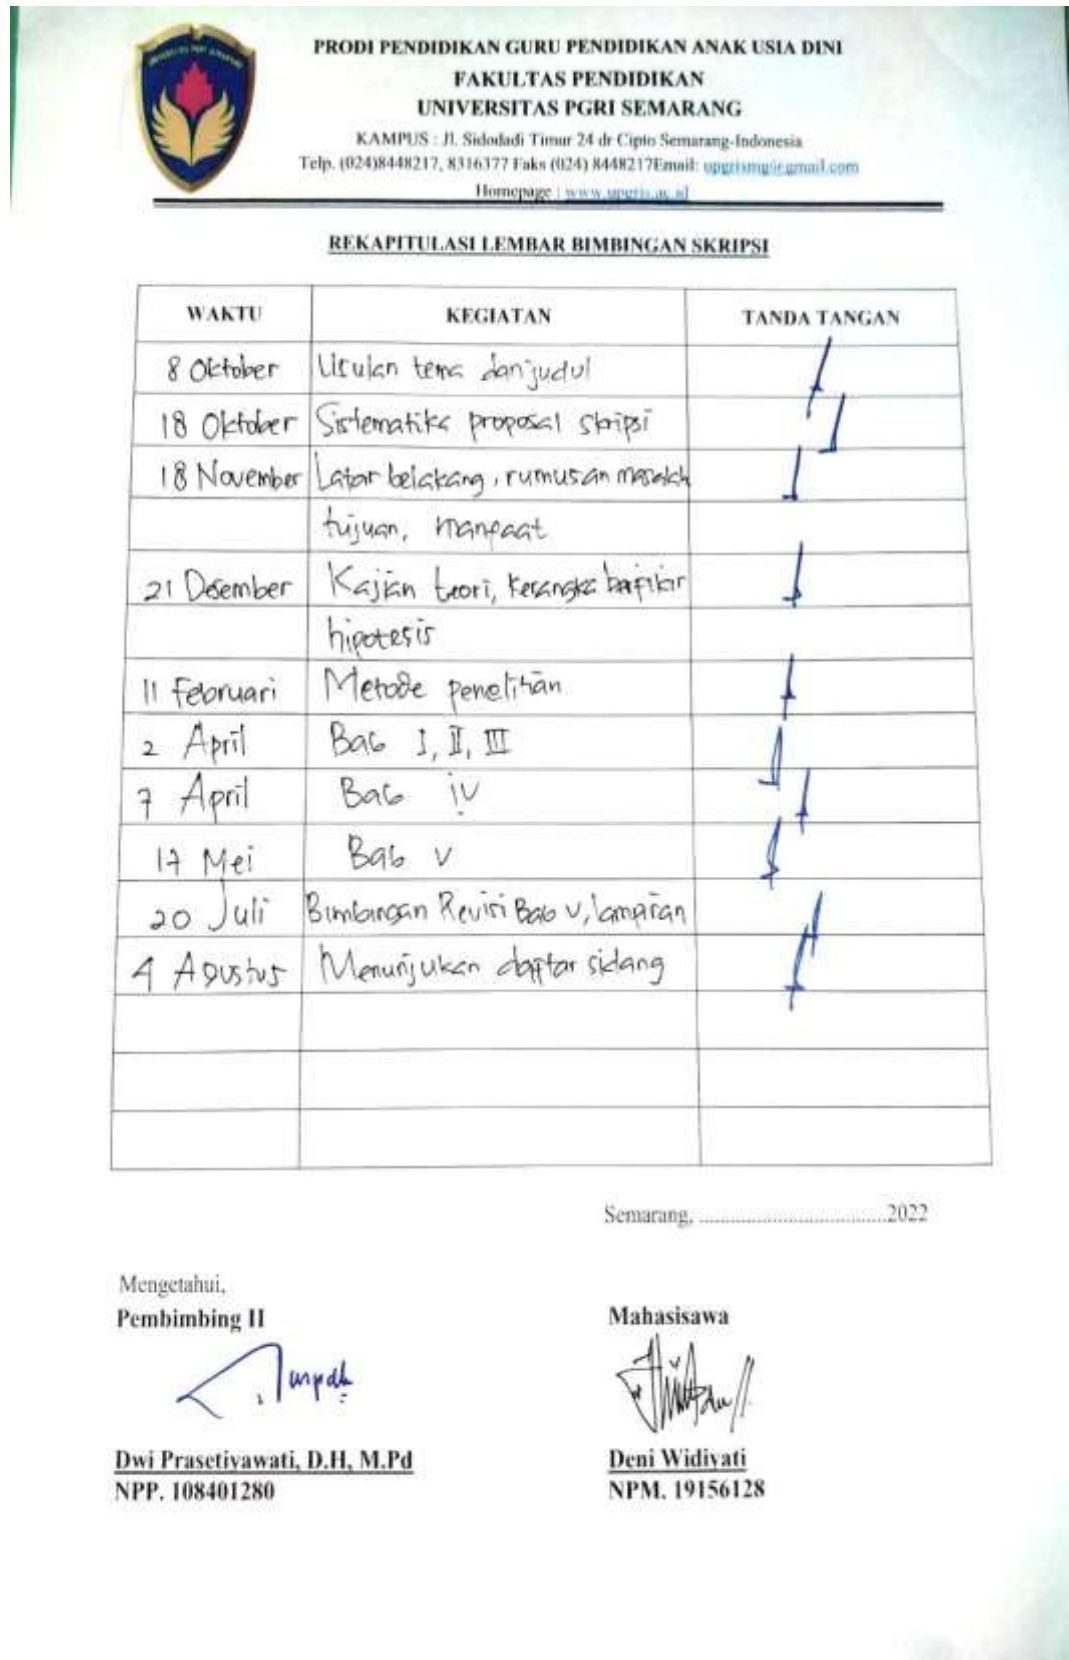 PRODI PENDIDIKAN GURU PENDIDIKAN ANAK USIA DINI
FAKULTAS PENDIDIKAN
UNIVERSITAS PGRI SEMARANG
KAMPUS : Jl. Sidodadi Timur 24 dr Cipto Semarang-Indonesia
Telp. (024)8448217, 8316377 Faks (024) 8448217Email: upgrismg@gmail.com
Homepage : www.upgris.ac.id
REKAPITULASI LEMBAR BIMBINGAN SKRIPSI
WAKTU KEGIATAN TANDA TANGAN
8 Oktober Usulan tema dan judul
18 Oktober Sistematika proposal skripsi
18 November Latar belakang, rumusan masalah
tujuan, manfaat
21 Desember Kajian teori, kerangka berfikir
hipotesis
11 Februari Metode penelitian
2 April Bab I, II, III
7 April Bab IV
17 Mei Bab V
20 Juli Bimbingan Revisi Bab V, lampiran
4 Agustus Menunjukan daftar sidang
Semarang, ....................................2022
Mengetahui,
Pembimbing II Mahasisawa
Dwi Prasetiyawati, D.H, M.Pd Deni Widiyati
NPP. 108401280 NPM. 19156128